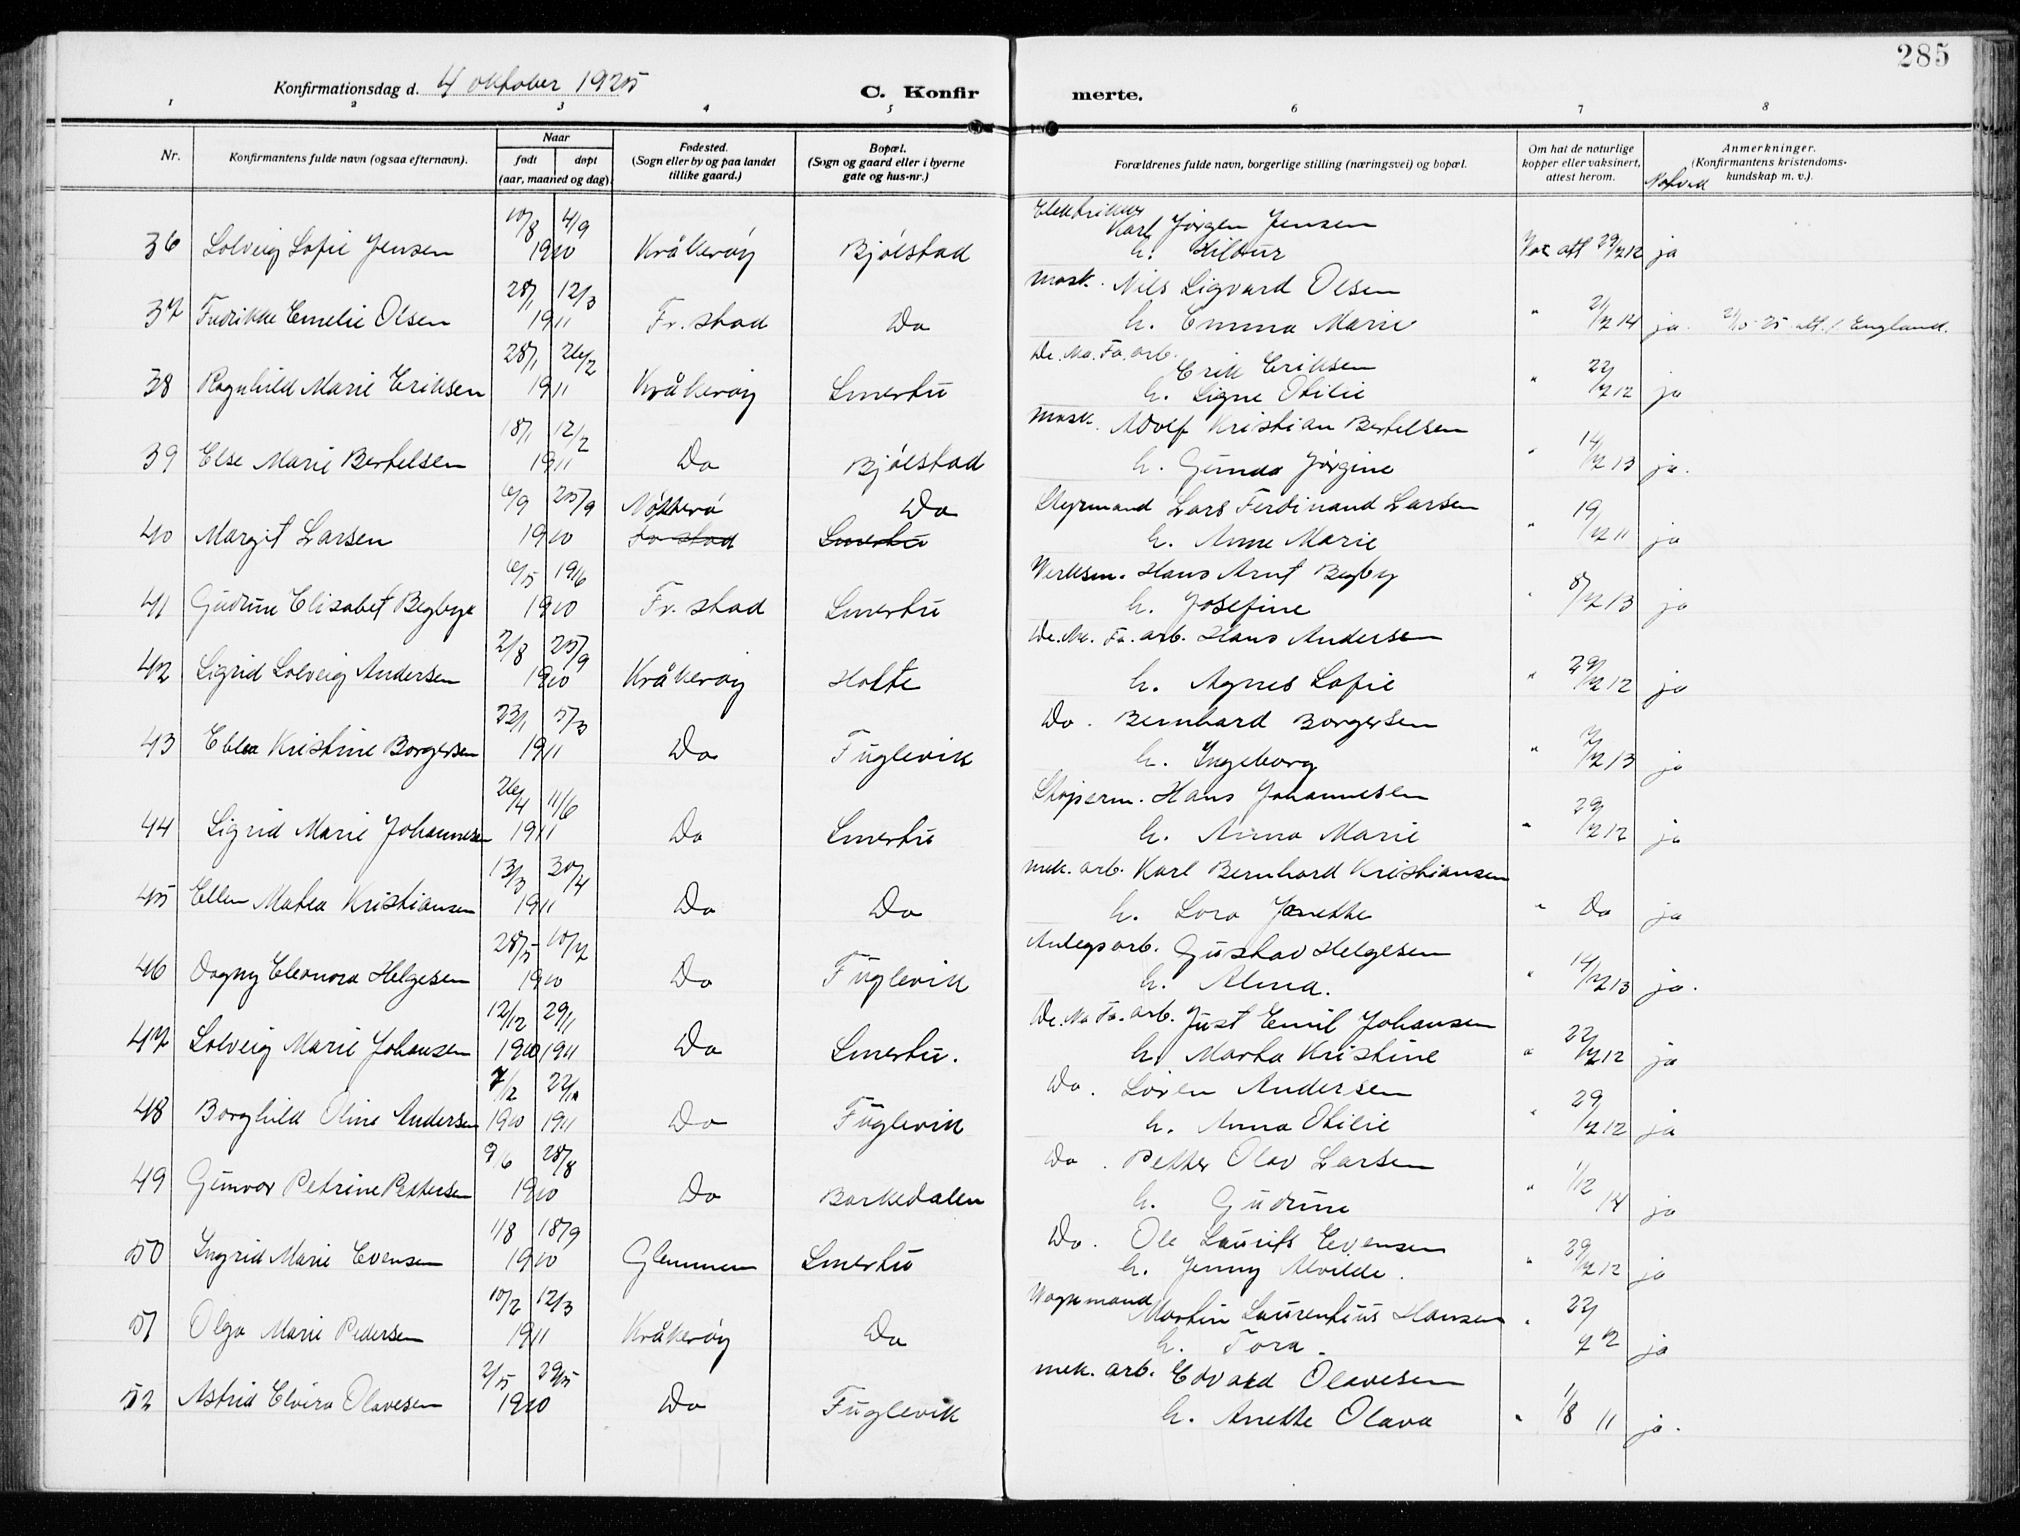 285
Konfirmationsdag d. 4 oktober 1925
C. Konfirmerte.
1 2 3 4 5 6 7 8
Nr.
Konfirmantens fulde navn (ogsaa efternavn).
Naar
født døpt
(aar, maaned og dag)
Fødested.
(Sogn eller by og paa landet
tillike gaard.)
Bopæl.
(Sogn og gaard eller i byerne
gate og hus-nr.)
Forældrenes fulde navn, borgerlige stilling (næringsvei) og bopæl.
Om hat de naturlige
kopper eller vaksinert,
attest herom.
Anmerkninger.
(Konfirmantens kristendoms-
kundskap m. v.).
10/8 4/9 Elektriker Karl Jørgen Jensen
36 Solveig Sofie Jensen 1910 Kråkerøy Bjølstad h. Hildur Vac att 29/7 12 ja
28/1 12/3 Mask. Nils Sigvard Olsen
37 Fredrikke Emelie Olsen 1911 Fr.stad Do h. Emma Marie " 21/7 14 ja. att. t. England.
28/1 26/2 De. No. Fa. arb. Erik Eriksen
38 Ragnhild Marie Eriksen 1911 Kråkerøy Smertu h. Signe Otilie " 22/7 12 ja
18/1 12/2 Mask. Adolf Kristian Bertelsen
39 Else Marie Bertelsen 1911 Do Bjølstad h. Gunda Jørgine " 14/7 13 ja.
6/9 25/9 Nøtterø Do Styrmand Lars Ferdinand Larsen
40 Margit Larsen 1910 Fr stad Smertu h. Anne Marie " 19/12 11 ja
6/5 19/6 Verksm. Hans Arnt Begby
41 Gudrun Elisabet Begbye 1910 Fr. stad Smertu h. Josefine " 8/7 13 ja
2/8 25/9 De. No. Fa. arb. Hans Andersen
42 Sigrid Solveig Andersen 1910 Kråkerøy Holte h. Agnes Sofie " 29/7 12 ja
23/1 5/3 Do. Bernhard Borgersen
43 Ebba Kristine Borgersen 1911 Do Fuglevik h. Ingeborg " 7/7 13 ja
26/4 11/6 Skiperm. Hans Johannesen
44 Sigrid Marie Johannesen 1911 Do Smertu h. Anna Marie " 29/7 12 ja
13/3 30/4 mek. arb. Karl Bernhard Kristiansen
45 Ellen Matea Kristiansen 1911 Do Do h. Lora Janette " Do ja
28/5 10/7 Anlegsarb. Gustav Helgesen
46 Dagny Eleonora Helgesen 1910 Do Fuglevik h. Alma. " 14/7 13 ja.
12/12 29/1 De. No Fa. arb. Just Emil Johansen
47 Solveig Marie Johansen 1910 1911 Do Smertu. h. Marta Kristine " 22/7 12 ja
7/12 Do. Søren Andersen
48 Borghild Oline Andersen 1910 1911 Do Fuglevik h. Anna Otilie " 29/7 12 ja
9/6 28/8 Do. Petter Olav Larsen
49 Gunvor Petrine Pettersen 1910 Do Barkedalen h. Gudrun " 1/12 14 ja
1/8 18/9 Do. Ole Laurits Evensen
50 Ingrid Marie Evensen 1910 Glemmen Smertu h. Jenny Alvilde. " 29/7 12 ja
10/2 12/3 Vognmand Martin Laurentius Hansen
51 Olga Marie Pedersen 1911 Kråkerøy Do h. Tora. " 22/7 12 ja
2/5 29/5 mek. arb. Edvard Olavesen
52 Astrid Elvira Olavesen 1910 Do Fuglevik h. Anette Olava " 1/8 11 ja.